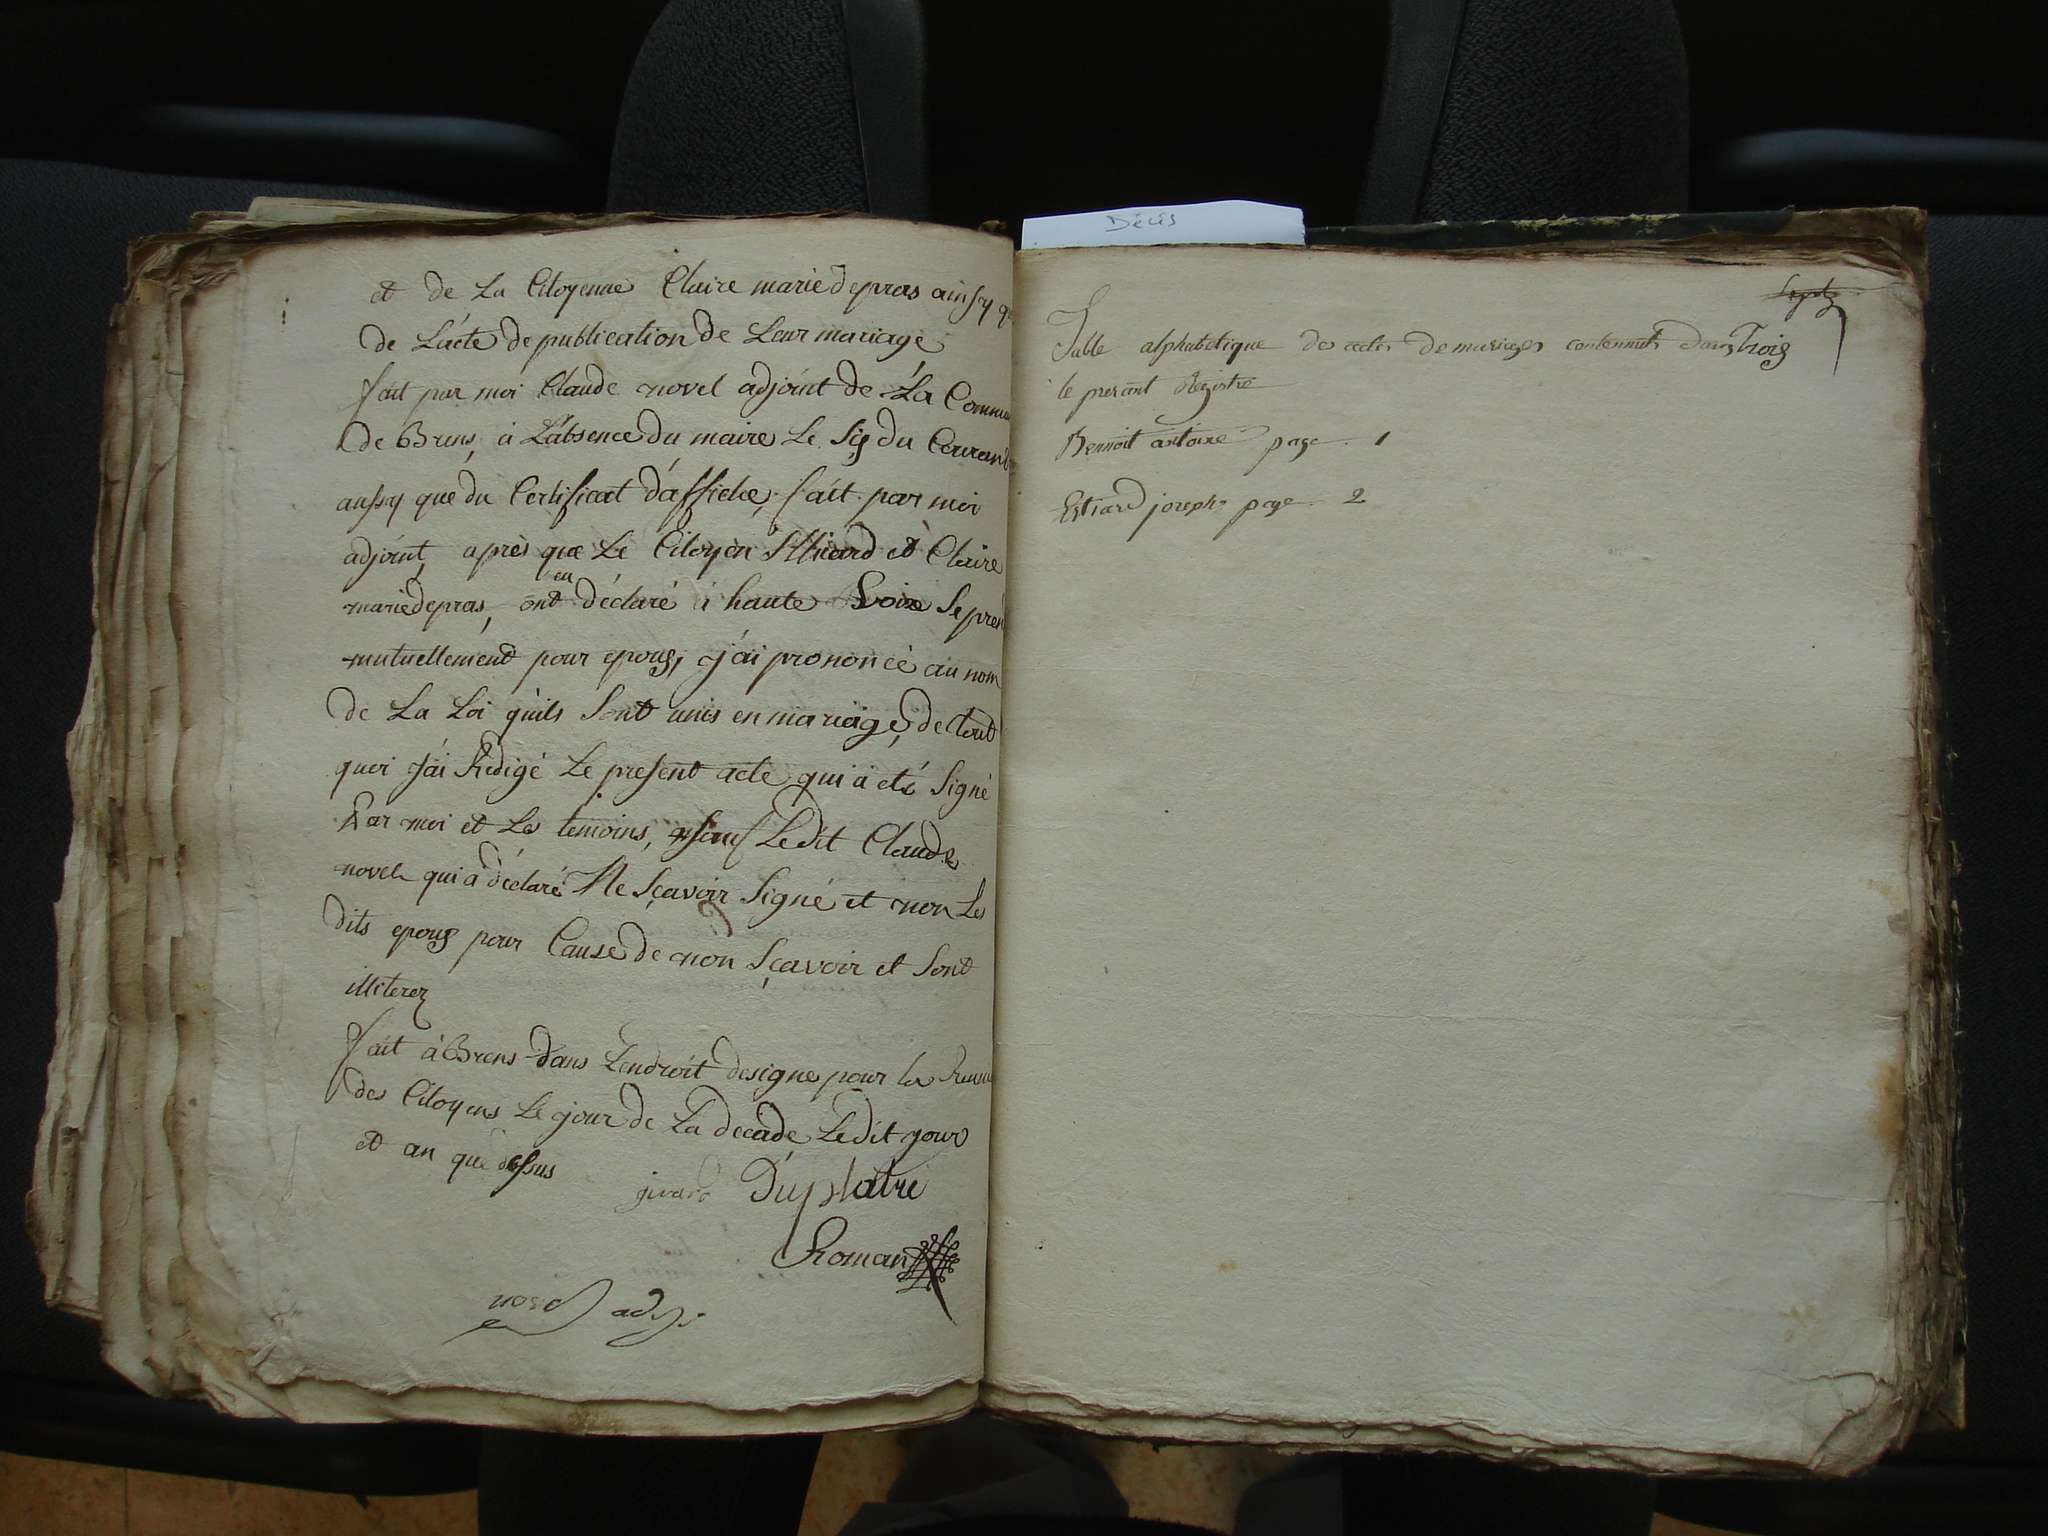 et de La Citoyenne Claire marie depras ainsy
de L'acte de publication de Leur mariage
fait par moi Claude novel adjoint de La Commu
de Brens, à L'absence du maire Le Six du Courand
aussy que du Certificat d'affiche, fait par moi
adjoint, après que Le Citoyen et Claire
en
marie depras, ont déclaré à haute Voixe Se pren
mutuellement pour epoux, j'ai prononcé au nom
de La Loi qu'ils Sont unis en mariage, de tout
quoi j'ai Redigé Le present acte qui à eté Signé
Par moi et Les temoins, sauf Ledit Claude
novel qui à déclaré Ne Sçavoir Signé et non Les
dits epoux pour Cause de non Sçavoir et Sont
illiterez
fait à Brens dans Lendroit designe pour la Reuni
des Citoyens Le jour de La decade Ledit jour
et an que dessus
girard Duplatre
Roman
novel adj.
Décés
Table alphabetique des actes de mariages contennuts dans trois
le present Registre
Bennoit antoine page 1
Estiard joseph page 2